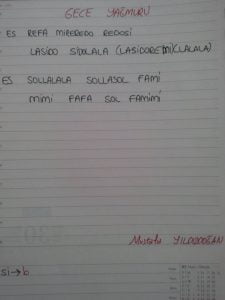 GECE YAĞMURU
ES REFA MIREREDO REDOSİ
LASİDO SİDOLALA (LASİDOREMİ)(LALALA)
ES SOLLALALA SOLLASOL FAMİ
MİMİ FAFA SOL FAMİMİ
Mustafa YILDIZDOĞAN
Si→b